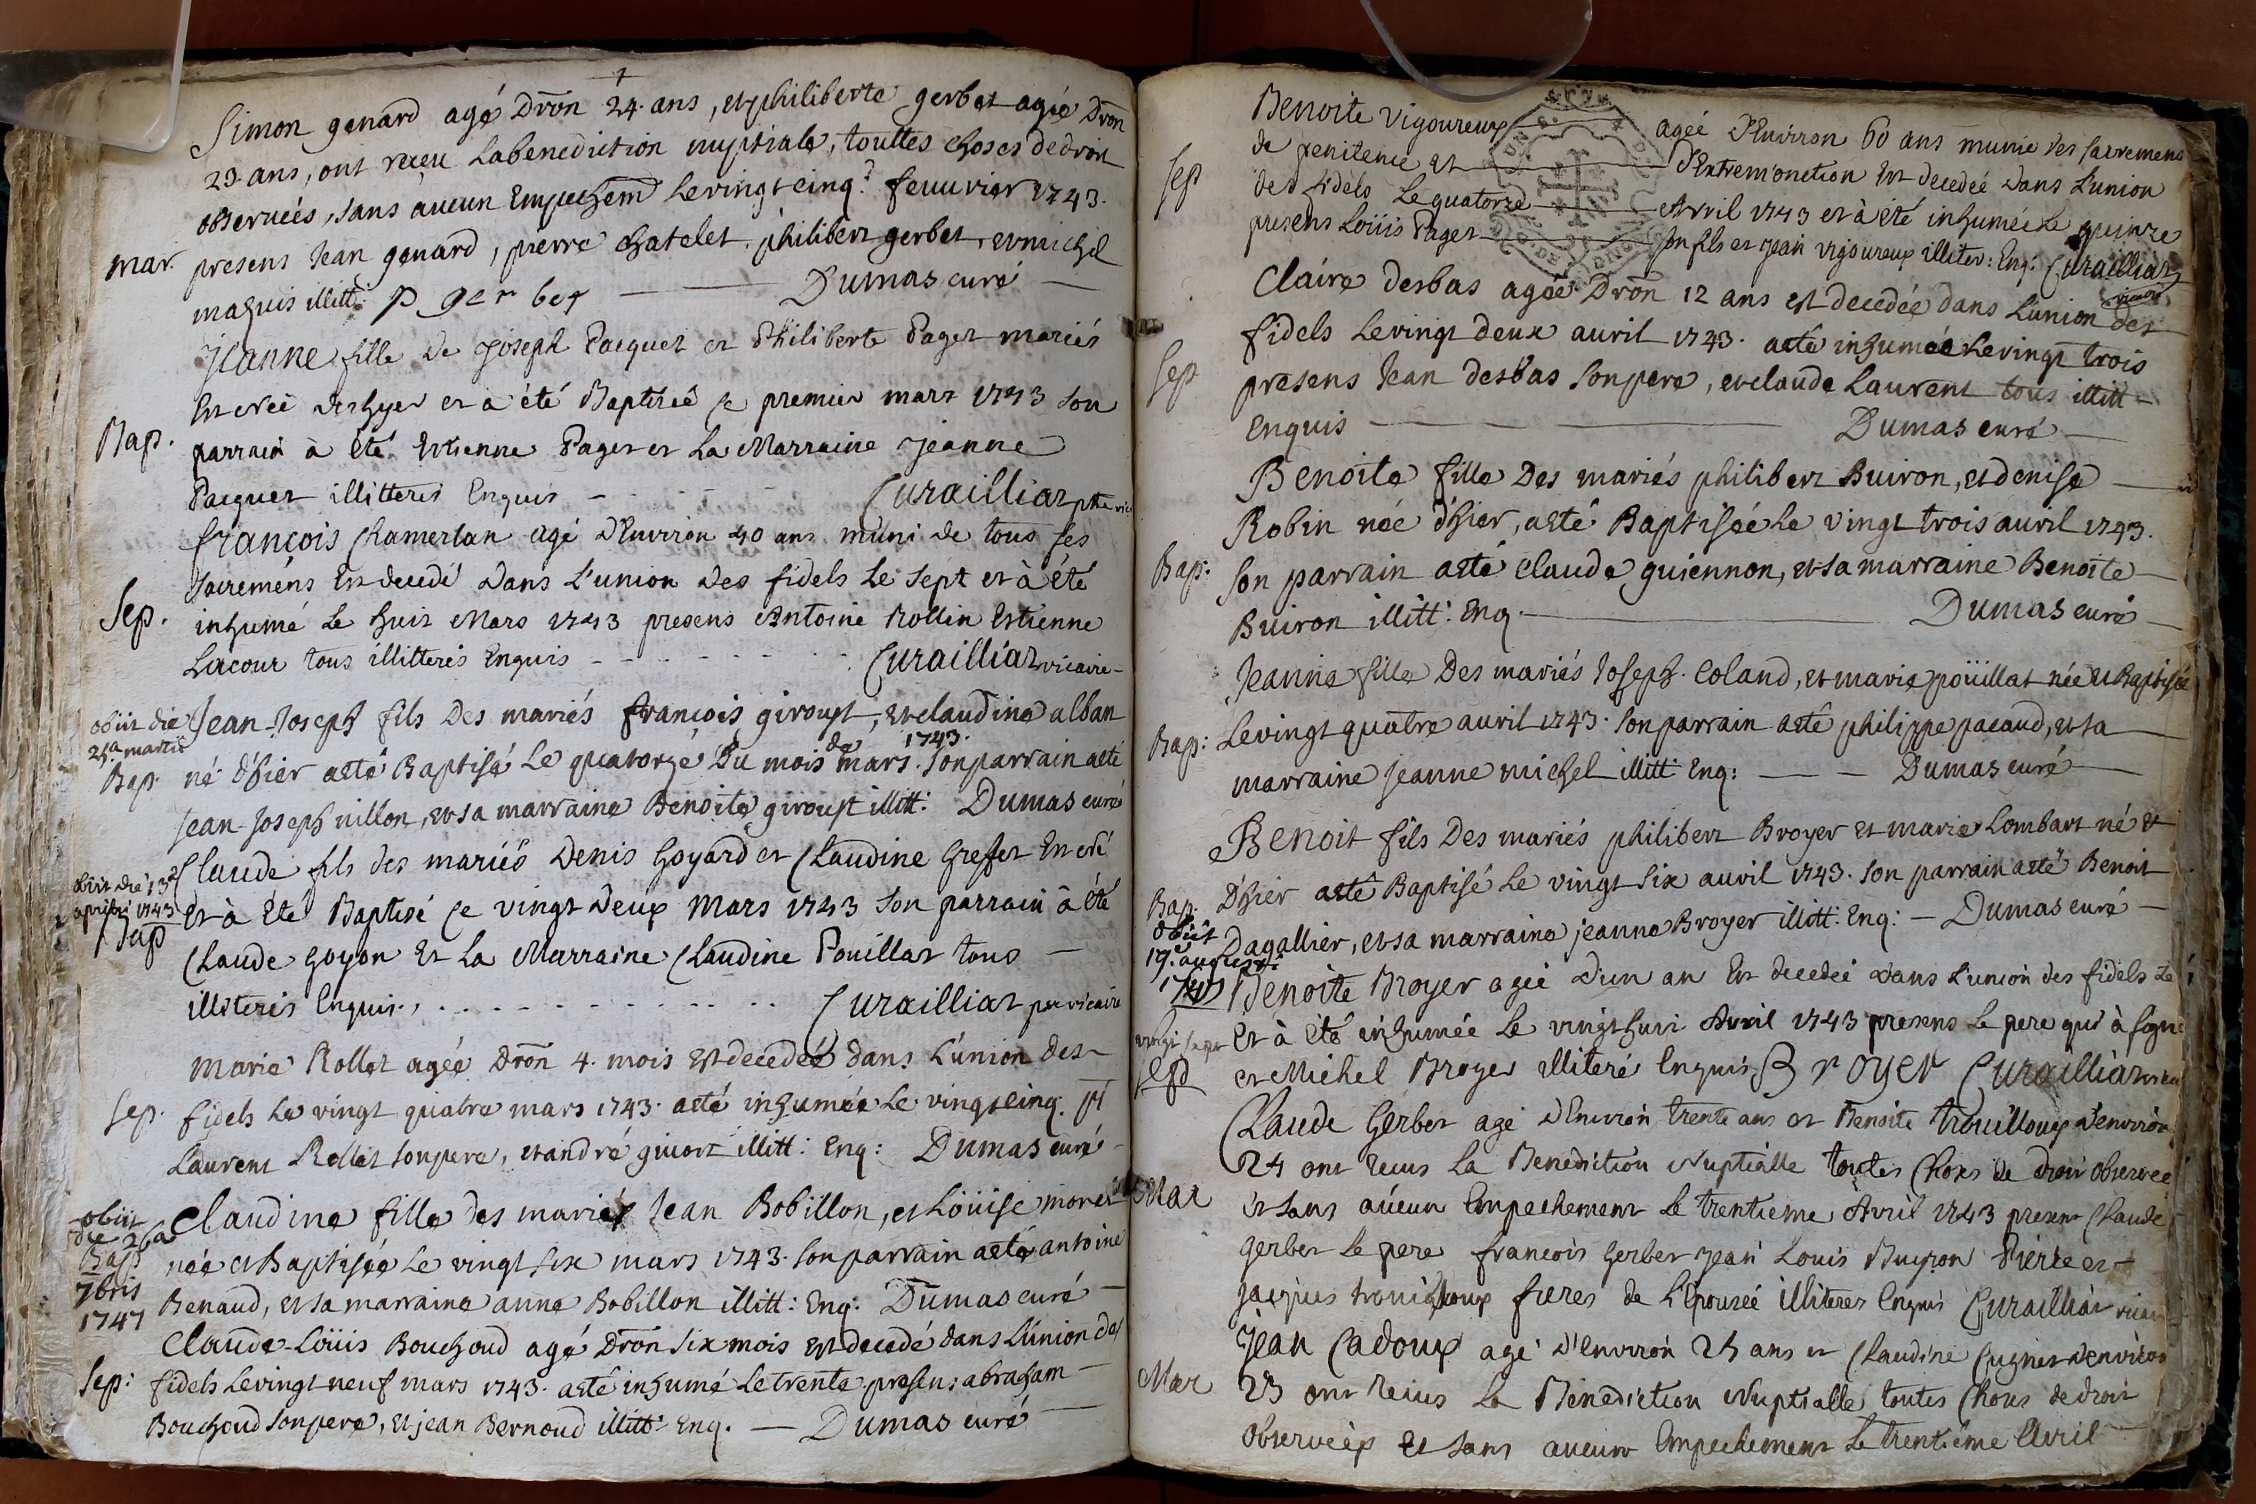 Simon genard agé Dron 24. ans, et philiberte gerbet agée Dron
23. ans, ont reçeu La benediction nuptiale, touttes choses dedroit
observées, sans aucun Empechem levingt cinq. feuvrier 1743.
mar. presens Jean genard, pierre chatelet, philibert gerbet, et michel
maquis illitt: p gerbet Dumas curé
Jeanne fille de Joseph Pacquet et Philiberte Paget mariés
Est née d'Hyer et a été Baptisée ce premier mars 1743 son
Bap. parrain à été Estienne Paget et La Marraine Jeanne
Pacquet illitteres Enquis Curailliat ptre vic
françois Chamerlan agé d'Environ 40 ans muni de tous ses
sacremens Est decedé dans L'union des fidels Le sept et à été
Sep. inhumé Le huit Mars 1743 presens Antoine Rollin Estienne
Lacour tous illitterés Enquis Curailliat vicaire
obiit die 25a martii
Jean-Joseph fils Des mariés françois giroust, et claudine alban
Bap. né d'hier aeté Baptisé Le quatorzé Du mois de mars 1743. son parrain aeté
Jean-Joseph uillon, et sa marraine Benoite giroust illitt: Dumas curé
obiit die 13a aprilis 1743
Claude fils des mariés Denis Goyard et Claudine Greffet
Bap Et à Eté Baptisé ce vingt Deux Mars 1743 Son parrain à été
Claude Goyon Et La Marraine Claudine Pouillat tous
illiterés Enquis. Curailliat vicaire
marie Rollet agée Dron 4. mois est decedeé dans L'union des
Sep. fidels Le vingt quatre mars 1743. aeté inhumée Le vingt cinq. pt
Laurent Rollet son pere, et andré giuort illitt: Enq: Dumas curé
obiit die 26a 7bris 1747
Claudine fille des mariés Jean Bobillon, et Loüise morel
Bap née et Baptisée Le vingt six mars 1743. son parrain aeté antoine
Benaud, et sa marraine anne Bobillon illitt: Enq: Dumas curé
Claude-Loüis Bouchoud agé Dron six mois est decedé dans L'union des
Sep: fidels Levingt neuf mars 1743. aeté inhumé Le trente. presens abraham
Bouchoud son pere, et jean Bernoud illitt: Enq. Dumas curé
Benoite Vigoureux agée d'Environ 60 ans munie des sacremens
Sep de penitence et d'Extremonction Est decedeé dans L'union
des fidels Le quatorze Avril 1743 et à été inhumée Le quinze
presens Loüis Paget son fils et Jean Vigoureux illiter: Enq: Curailliat
vicaire
Claire desbas agée Dron 12 ans est decedée dans L'union des
fidels Levingt deux auril 1743. aeté inhumée Levingt trois
Sep presens Jean desbas son pere, et claude Laurent tous illitt
Enquis Dumas curé
Benoite fille Des mariés philibert Buiron, et denise
Robin née d'hier, aeté Baptisée Le vingt trois auril 1743.
Bap: son parrain aeté claude guiennon, et sa marraine Benoite
Buiron illitt: Enq. Dumas curé
Jeanne fille Des mariés Joseph. Coland, et marie poüillat née et Baptisée
Bap: Levingt quatre auril 1743. son parrain aeté philippe pacaud, et sa
marraine Jeanne michel illitt: Enq: Dumas curé
Benoit fils Des mariés philibert Broyer et marie Lombart né
Bap. D'hier aeté Baptisé Le vingt six auril 1743. son parrain aeté Benoit
obiit 19a augusti 1743
Dagallier, et sa marraine jeanne Broyer illitt: Enq: Dumas curé
Benoite Broyer agée d'un an Est decedeé dans L'union des fidels Le
vingt sept Et à été inhumée Le vingt huit Avril 1743 presens Le pere qui à signé
Sep et Michel Broyer illiteré Enquis Broyer Curailliat
Claude Gerbet agé d'Environ trente ans et Benoite trouilloux d'environ
24 ont reçus La Benediction Nuptialle toutes Choses de droit observées
Mar et sans aúcun Empechement Le trentieme Avril 1743 presens Claude
gerbet Le pere françois Gerbet Jean Louis Buyron Pierre et
Jacques trouilloux freres de L'Epouseé illiteres Enquis Curailliat vicaire
Jean Cadoux agé d'environ 25 ans et Claudine Cugnet d'environ
Mar 23 ont Reçus La Benediction Nuptialle toutes Choses de droit
observeés Et sans aucun Empechement Le trentiéme Avril